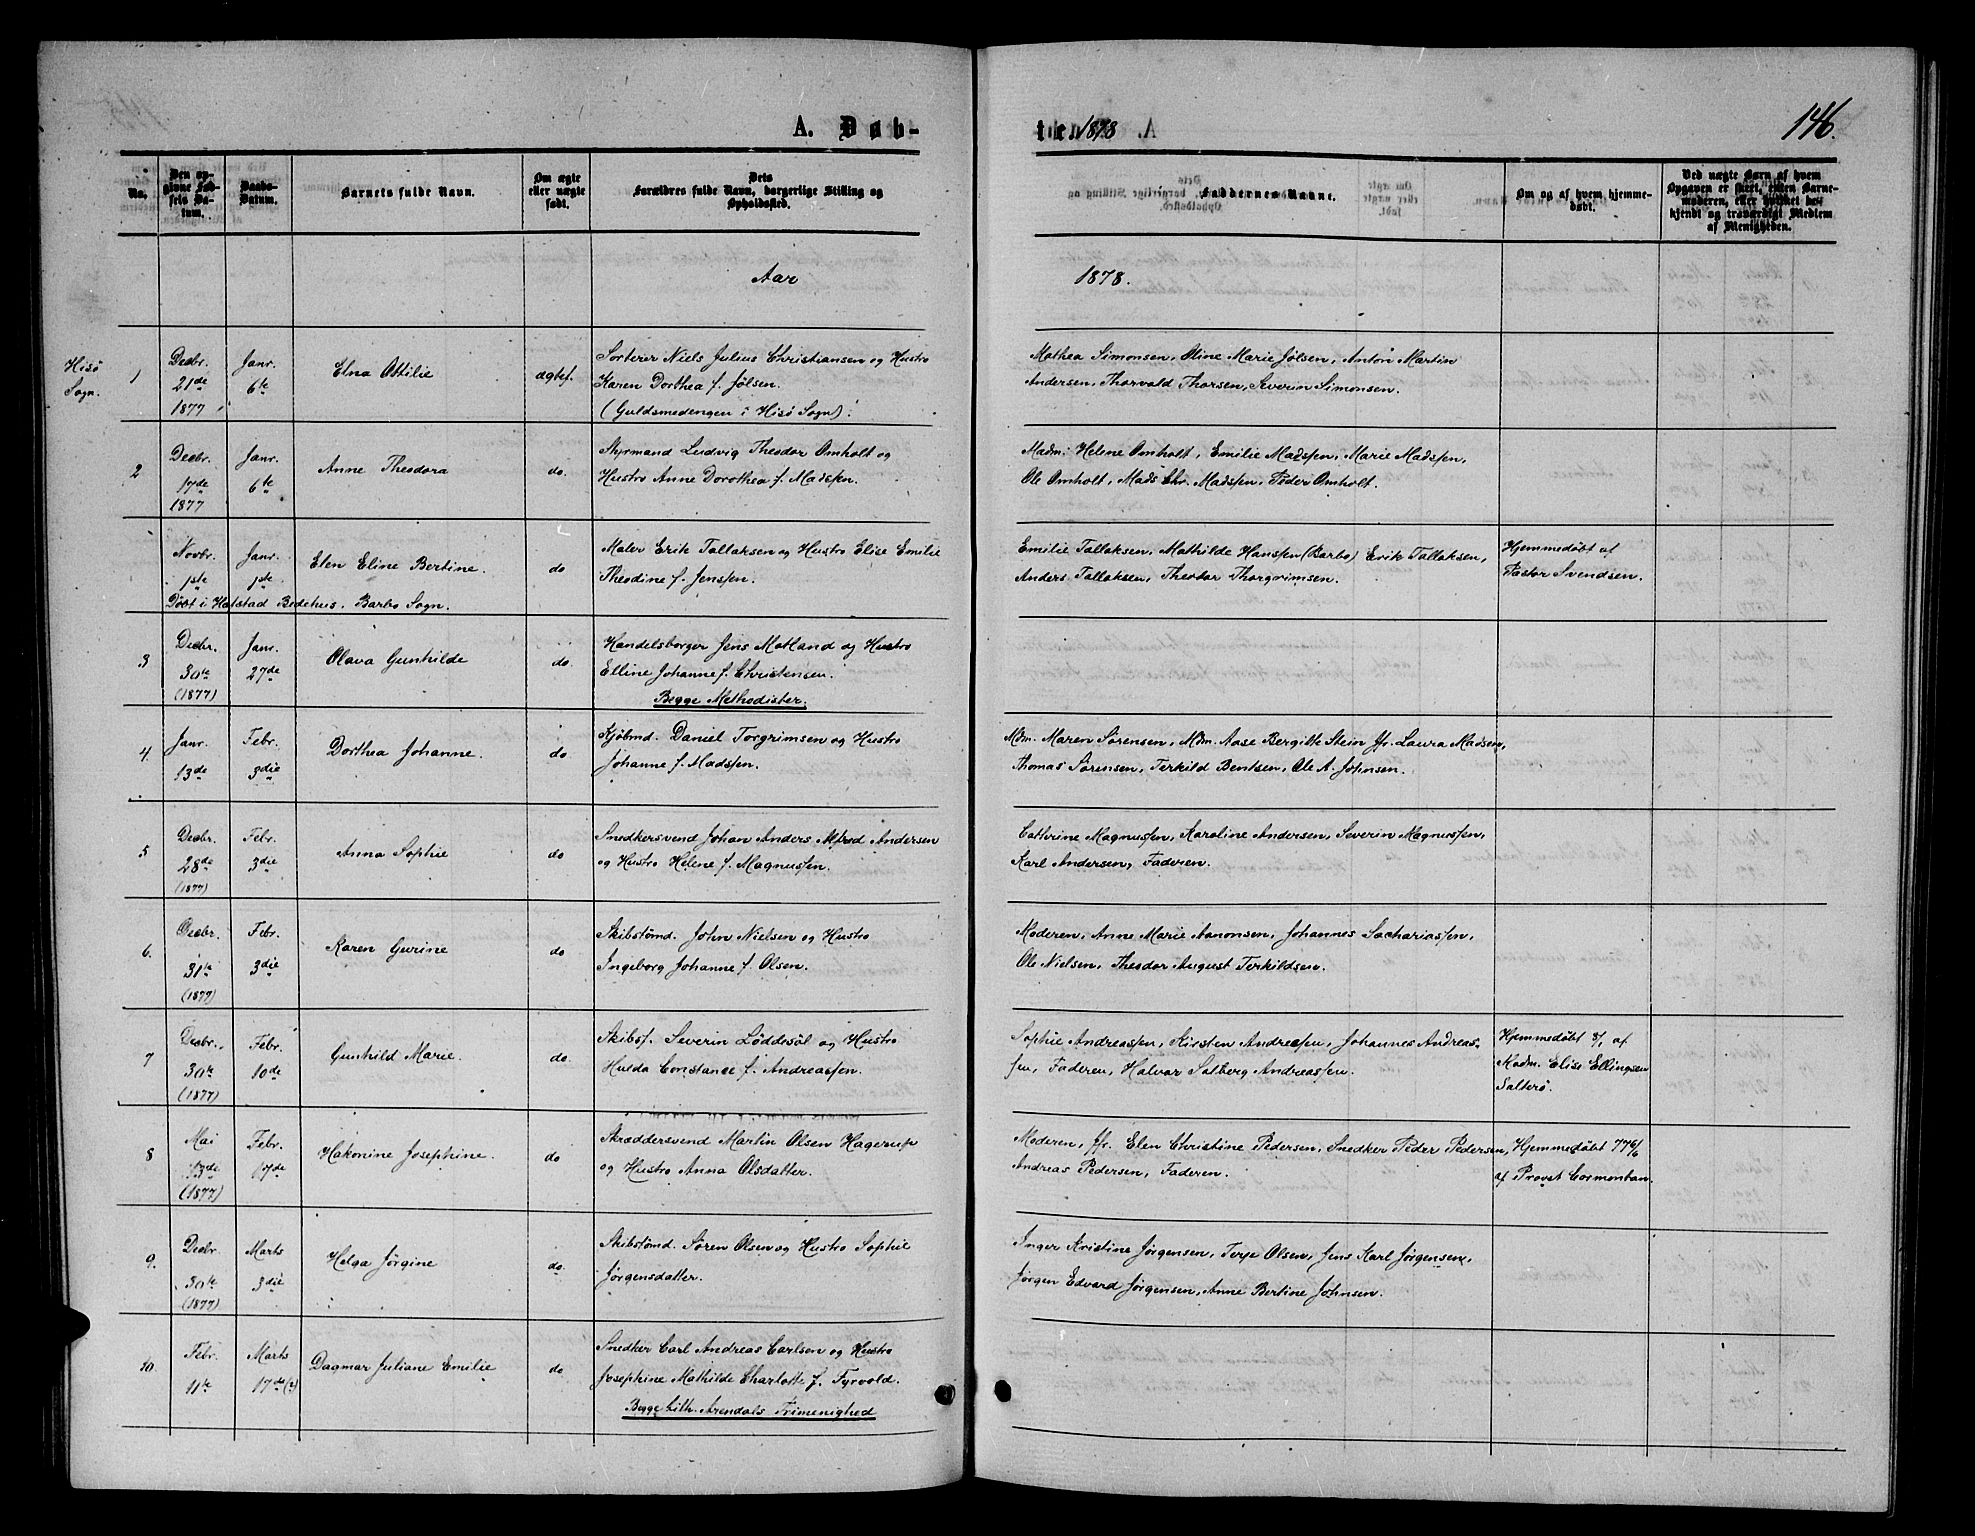 A. Døb-
No.
Den op-
givne Fød-
sels Da-
tum.
Daabs-
Datum.
Barnets fulde Navn.
Om ægte
eller uægte
født.
Dets
Forældres fulde Navn, borgerlige Stilling og
Opholdssted.
Aar
Hisø
Sogn.
1
Decbr.
21de
1877
Janr.
6te
Elna Ottilie
ægtef.
Sorterer Niels Julius Christiansen og Hustro
Karen Dorthea f. Jølsen.
(Guldsmedengen i Hisø Sogn).
2
Decbr.
17de
1877
Janr.
6te
Anne Theodora
do.
Styrmand Ludvig Theodor Omholt og
Hustro Anne Dorothea f. Madsen.
Novbr.
1ste
Janr.
1ste
Elen Eline Bertine.
do
Maler Erik Tallaksen og Hustro Elise Emilie
Theodine f. Jenssen.
Døbt i Hatstad Bedehus. Barbo Sogn.
3
Decbr.
30te
(1877)
Janr.
27de
Olava Gunhilde
do.
Handelsborger Jens Motland og Hustro
Elline Johanne f. Christensen.
Begge Methodister.
4.
Janr.
13de
Febr.
3die
Dorthea Johanne.
do
Kjøbmd. Daniel Torgrimsen og Hustro
Johanne f. Madssen.
5
Decbr.
28de
(1877)
Febr.
3die
Anna Sophie
do
Snedkersvend Johan Anders Alfred Andersen
og Hustro Helene f. Magnussen.
6.
Decbr.
31te
(1877)
Febr.
3die
Karen Gurine
do
Skibstømd. John Nielsen og Hustro
Ingeborg Johanne f. Olsen.
7
Decbr.
30te
(1877)
Febr.
10de
Gunhild Marie.
do.
Skibsf. Severin Løddesøl og Hustro
Hulda Constance f. Andreassen.
8
Mai
(1877)
Febr.
17de
Hakonine Josephine.
do
Skræddersvend Martin Olsen Hagerup
og Hustro Anna Olsdatter.
9.
Decbr.
30te
(1877)
Marts
3die
Helga Jørgine
do.
Skibstømd. Søren Olsen og Hustro Sophie
Jørgensdatter.
10.
Febr.
11te
Marts
17de(?)
Dagmar Juliane Emilie
do
Snedker Carl Andreas Carlsen og Hustro
Josephine Mathilde Charlotte f. Fyrvold.
Begge tilh. Arendals Frimenighed
te. 1878
146.
Faddernes Navne.
Om og af hvem hjemme-
døbt.
Ved uægte Barn af hvem
Opgaven er skeet, enten Barne-
moderen, eller hvilket be-
kjendt og troværdigt Medlem
af Menigheden.
1878.
Mathea Simonsen, Oline Marie Jølsen, Anton Martin
Andersen, Thorvald Thorsen, Severin Simonsen.
Madm. Helene Omholt, Emilie Madssen, Marie Madssen,
Ole Omholt, Mads Chr. Madssen, Peder Omholt.
Emilie Tallaksen, Mathilde Hanssen (Barbo) Erik Tallaksen,
Anders Tallaksen, Theodor Thorgrimsen.
Hjemmedøbt af
Pastor Svendsen.
Mdm. Maren Sørensen, Mdm. Aase Bergitte Stein Jfr. Laura Madsen,
Thomas Sørensen, Terkild Bentsen, Ole A. Johnsen.
Cathrine Magnussen, Karoline Andersen, Severin Magnussen,
Karl Andersen, Faderen.
Moderen, Anne Marie Aanonsen, Johannes Sachariassen,
Ole Nielsen, Theodor August Terkildsen.
Sophie Andreassen, Kirsten Andreassen, Johannes Andreas-
sen, Faderen, Halvar Solberg Andreassen.
Hjemmedøbt 8/1 af
Madm. Elise Ellingsen
Salterø.
Moderen, Jfr. Elen Christine Pedersen, Snedker Peder Pedersen,
Andreas Pedersen, Faderen.
Hjemmedøbt
af Provst Cormontan.
Inger Kristine Jørgensen, Terje Olsen, Jens Karl Jørgensen,
Jørgen Edvard Jørgensen, Anne Bertine Johnsen.